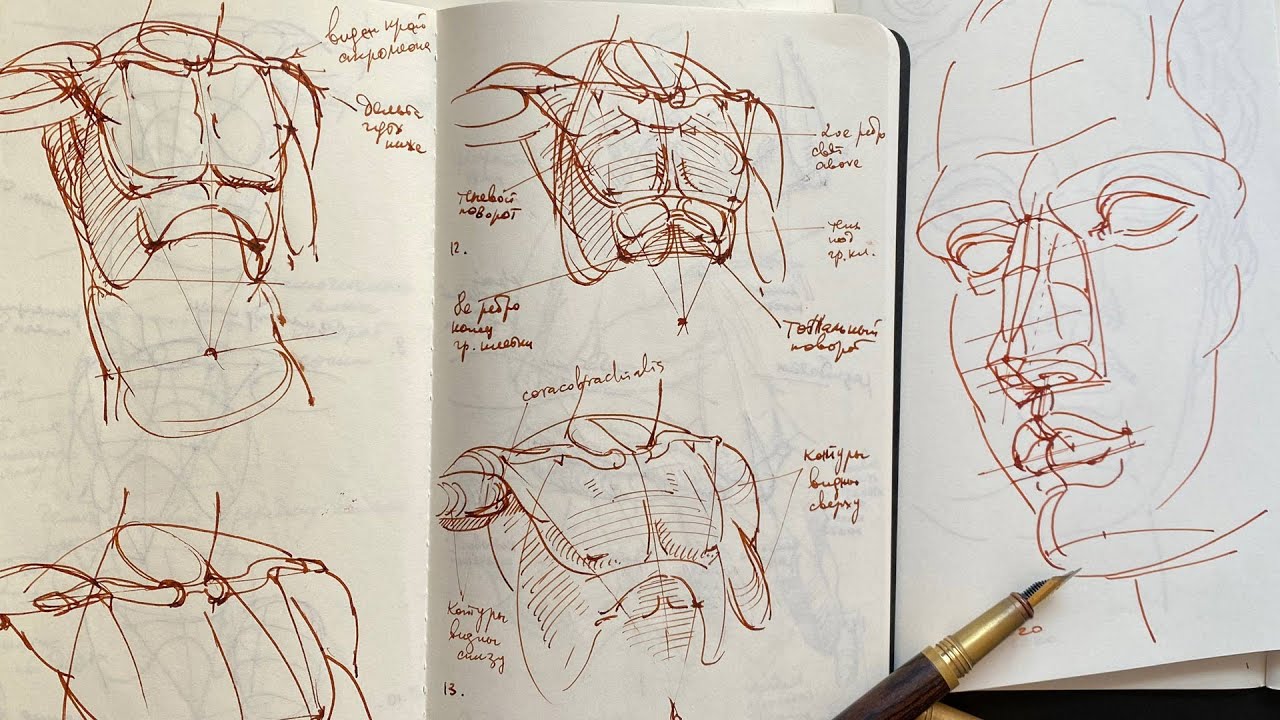 виден край
акромиона
дельта
чуть
ниже
2ое ребро
свет
above
теневой
поворот
12.
тень
под
гр. кл.
8е ребро
конец
гр. клетки
тотальный
поворот
coracobrachialis
контуры
видны
сверху
контуры
видны
снизу
13.
20